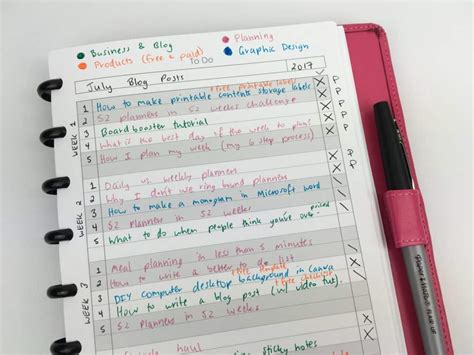 Business & Blog
Planning
Products (free & paid)
Graphic Design
To Do
July Blog Posts 2017
+ free printable label
WEEK 1
1 How to make printable contents storage labels X P
2 52 planners in 52 weeks challenge X P
3 Board booster tutorial X P
4 What is the best day of the week to plan? X P
5 How I plan my week (my 6 step process) X P
WEEK 2
1 Daily vs weekly planner X
2 Why I don't use ring bound planners X
3 How to make a monogram in Microsoft word
4 52 Planners in 52 weeks
5 What to do when people think you're over priced
WEEK 3
1 Meal planning in less than 5 minutes
2 How to write a better to do list
+ free template
3 DIY computer desktop background in Canva
+ free checklist
4 How to write a blog post (w/ video tut.)
5 52 Planners in 52 weeks X
haul X
sticky notes X